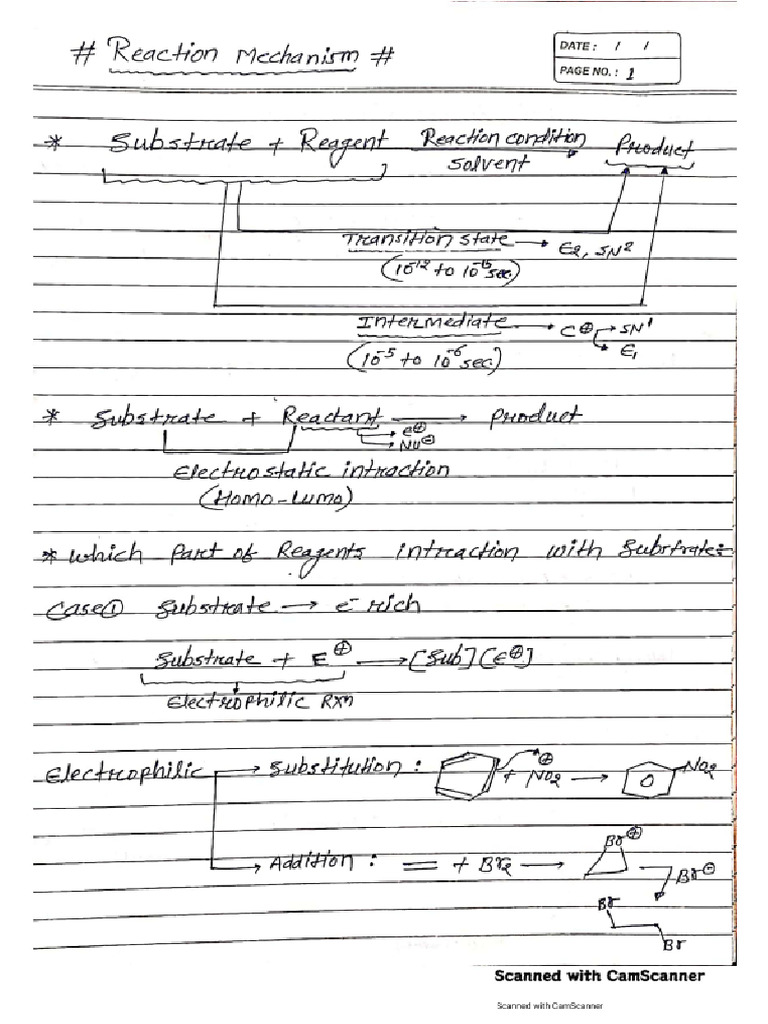 # Reaction Mechanism #
DATE : / /
PAGE NO. : 1
* Substrate + Reagent Reaction condition Product
Solvent
Transition state → E2, SN2
(10^-12 to 10^-15 sec)
Intermediate → C⊕ → SN1
→ E1
(10^-5 to 10^-6 sec)
* Substrate + Reactant → Product
→ e⊕
→ Nu⊖
Electrostatic intraction
(Homo-Lumo)
* which part of Reagents intraction with substrate:-
Case ① Substrate → e⁻ rich
Substrate + E⊕ → [Sub][E⊕]
Electrophilic Rxn
Electrophilic → Substitution : + NO2⊕ → NO2
→ Addition : = + Br2 → Br⊕
Br⊖
Br
Br
Scanned with CamScanner
Scanned with CamScanner